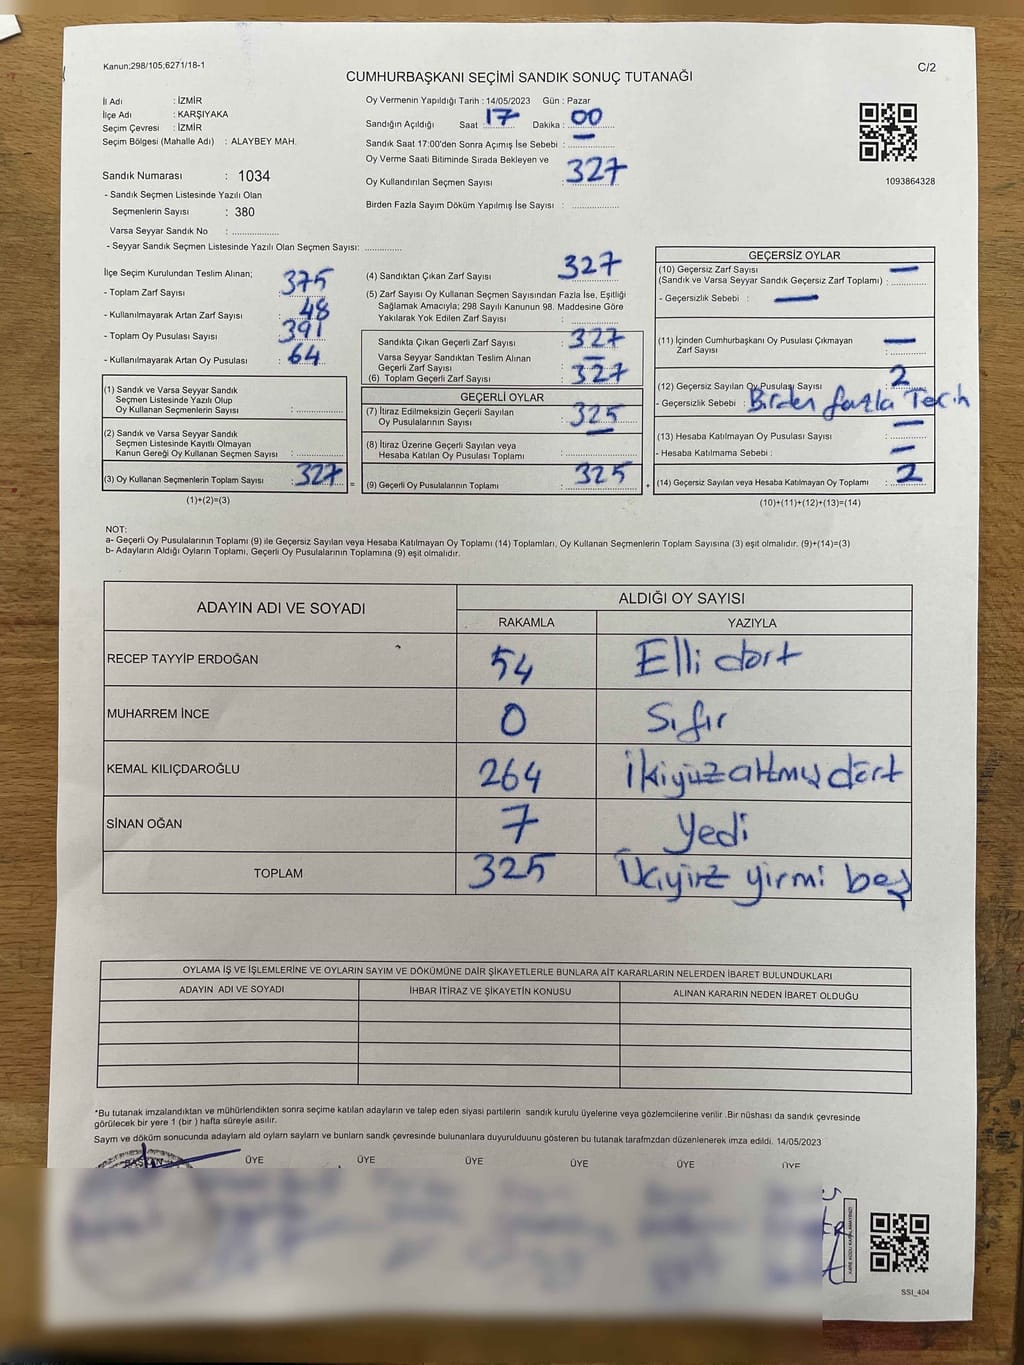 Kanun;298/105;6271/18-1
C/2
CUMHURBAŞKANI SEÇİMİ SANDIK SONUÇ TUTANAĞI
İl Adı : İZMİR
İlçe Adı : KARŞIYAKA
Seçim Çevresi : İZMİR
Seçim Bölgesi (Mahalle Adı) : ALAYBEY MAH.
Sandık Numarası : 1034
- Sandık Seçmen Listesinde Yazılı Olan
Seçmenlerin Sayısı : 380
Varsa Seyyar Sandık No : ................
- Seyyar Sandık Seçmen Listesinde Yazılı Olan Seçmen Sayısı: ............
Oy Vermenin Yapıldığı Tarih : 14/05/2023 Gün : Pazar
Sandığın Açıldığı Saat : 17 Dakika : 00
Sandık Saat 17:00'den Sonra Açımış İse Sebebi : —
Oy Verme Saati Bitiminde Sırada Bekleyen ve
Oy Kullandırılan Seçmen Sayısı : 327
Birden Fazla Sayım Döküm Yapılmış İse Sayısı : ................
1093864328
İlçe Seçim Kurulundan Teslim Alınan;
- Toplam Zarf Sayısı : 375
- Kullanılmayarak Artan Zarf Sayısı : 48
- Toplam Oy Pusulası Sayısı : 391
- Kullanılmayarak Artan Oy Pusulası : 64
(1) Sandık ve Varsa Seyyar Sandık
Seçmen Listesinde Yazılı Olup
Oy Kullanan Seçmenlerin Sayısı : ................
(2) Sandık ve Varsa Seyyar Sandık
Seçmen Listesinde Kayıtlı Olmayan
Kanun Gereği Oy Kullanan Seçmen Sayısı : ................
(3) Oy Kullanan Seçmenlerin Toplam Sayısı : 327 =
(1)+(2)=(3)
(4) Sandıktan Çıkan Zarf Sayısı : 327
(5) Zarf Sayısı Oy Kullanan Seçmen Sayısından Fazla İse, Eşitliği
Sağlamak Amacıyla; 298 Sayılı Kanunun 98. Maddesine Göre
Yakılarak Yok Edilen Zarf Sayısı : ................
Sandıkta Çıkan Geçerli Zarf Sayısı : 327
Varsa Seyyar Sandıktan Teslim Alınan
Geçerli Zarf Sayısı : —
(6) Toplam Geçerli Zarf Sayısı : 327
GEÇERLİ OYLAR
(7) İtiraz Edilmeksizin Geçerli Sayılan
Oy Pusulalarının Sayısı : 325
(8) İtiraz Üzerine Geçerli Sayılan veya
Hesaba Katılan Oy Pusulası Toplamı : —
(9) Geçerli Oy Pusulalarının Toplamı : 325 +
GEÇERSİZ OYLAR
(10) Geçersiz Zarf Sayısı —
(Sandık ve Varsa Seyyar Sandık Geçersiz Zarf Toplamı) :
- Geçersizlik Sebebi : —
(11) İçinden Cumhurbaşkanı Oy Pusulası Çıkmayan
Zarf Sayısı : —
(12) Geçersiz Sayılan Oy Pusulası Sayısı : 2
- Geçersizlik Sebebi : Birden fazla Tercih
(13) Hesaba Katılmayan Oy Pusulası Sayısı : —
- Hesaba Katılmama Sebebi : —
(14) Geçersiz Sayılan veya Hesaba Katılmayan Oy Toplamı : 2
(10)+(11)+(12)+(13)=(14)
NOT:
a- Geçerli Oy Pusulalarının Toplamı (9) ile Geçersiz Sayılan veya Hesaba Katılmayan Oy Toplamı (14) Toplamları, Oy Kullanan Seçmenlerin Toplam Sayısına (3) eşit olmalıdır. (9)+(14)=(3)
b- Adayların Aldığı Oyların Toplamı, Geçerli Oy Pusulalarının Toplamına (9) eşit olmalıdır.
ADAYIN ADI VE SOYADI
ALDIĞI OY SAYISI
RAKAMLA YAZIYLA
RECEP TAYYİP ERDOĞAN 54 Elli dört
MUHARREM İNCE 0 Sıfır
KEMAL KILIÇDAROĞLU 264 İkiyüzaltmış dört
SİNAN OĞAN 7 Yedi
TOPLAM 325 Üçyüz yirmi beş
OYLAMA İŞ VE İŞLEMLERİNE VE OYLARIN SAYIM VE DÖKÜMÜNE DAİR ŞİKAYETLERLE BUNLARA AİT KARARLARIN NELERDEN İBARET BULUNDUKLARI
ADAYIN ADI VE SOYADI İHBAR İTİRAZ VE ŞİKAYETİN KONUSU ALINAN KARARIN NEDEN İBARET OLDUĞU
*Bu tutanak imzalandıktan ve mühürlendikten sonra seçime katılan adayların ve talep eden siyasi partilerin sandık kurulu üyelerine veya gözlemcilerine verilir .Bir nüshası da sandık çevresinde
görülecek bir yere 1 (bir ) hafta süreyle asılır.
Sayım ve döküm sonucunda adayların ald oyların sayların ve bunların sandk çevresinde bulunanlara duyurulduunu gösteren bu tutanak tarafmzdan düzenlenerek imza edildi. 14/05/2023
BAŞKAN ÜYE ÜYE ÜYE ÜYE ÜYE ÜYE
SSI_404